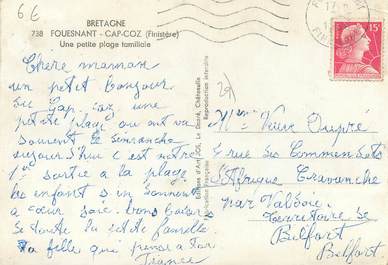 6 €
BRETAGNE
738 FOUESNANT - CAP-COZ (Finistère)
Une petite plage familiale
Chère maman
un petit bonjour
du Cap-coz, une
petite plage ou on va
souvent le dimanche
aujourd'hui c'est notre
1ère sortie a la plage
les enfants s'en donnent
a cœur joie. bons baisers
de toute la petite famille
Ta fille qui pense a toi
France
Reproduction interdite
29
15F
Mme Veuve Dupre
4 rue des Commandos
d'Afrique Cravanche
par Valdoie
Territoire de
Belfort
Belfort